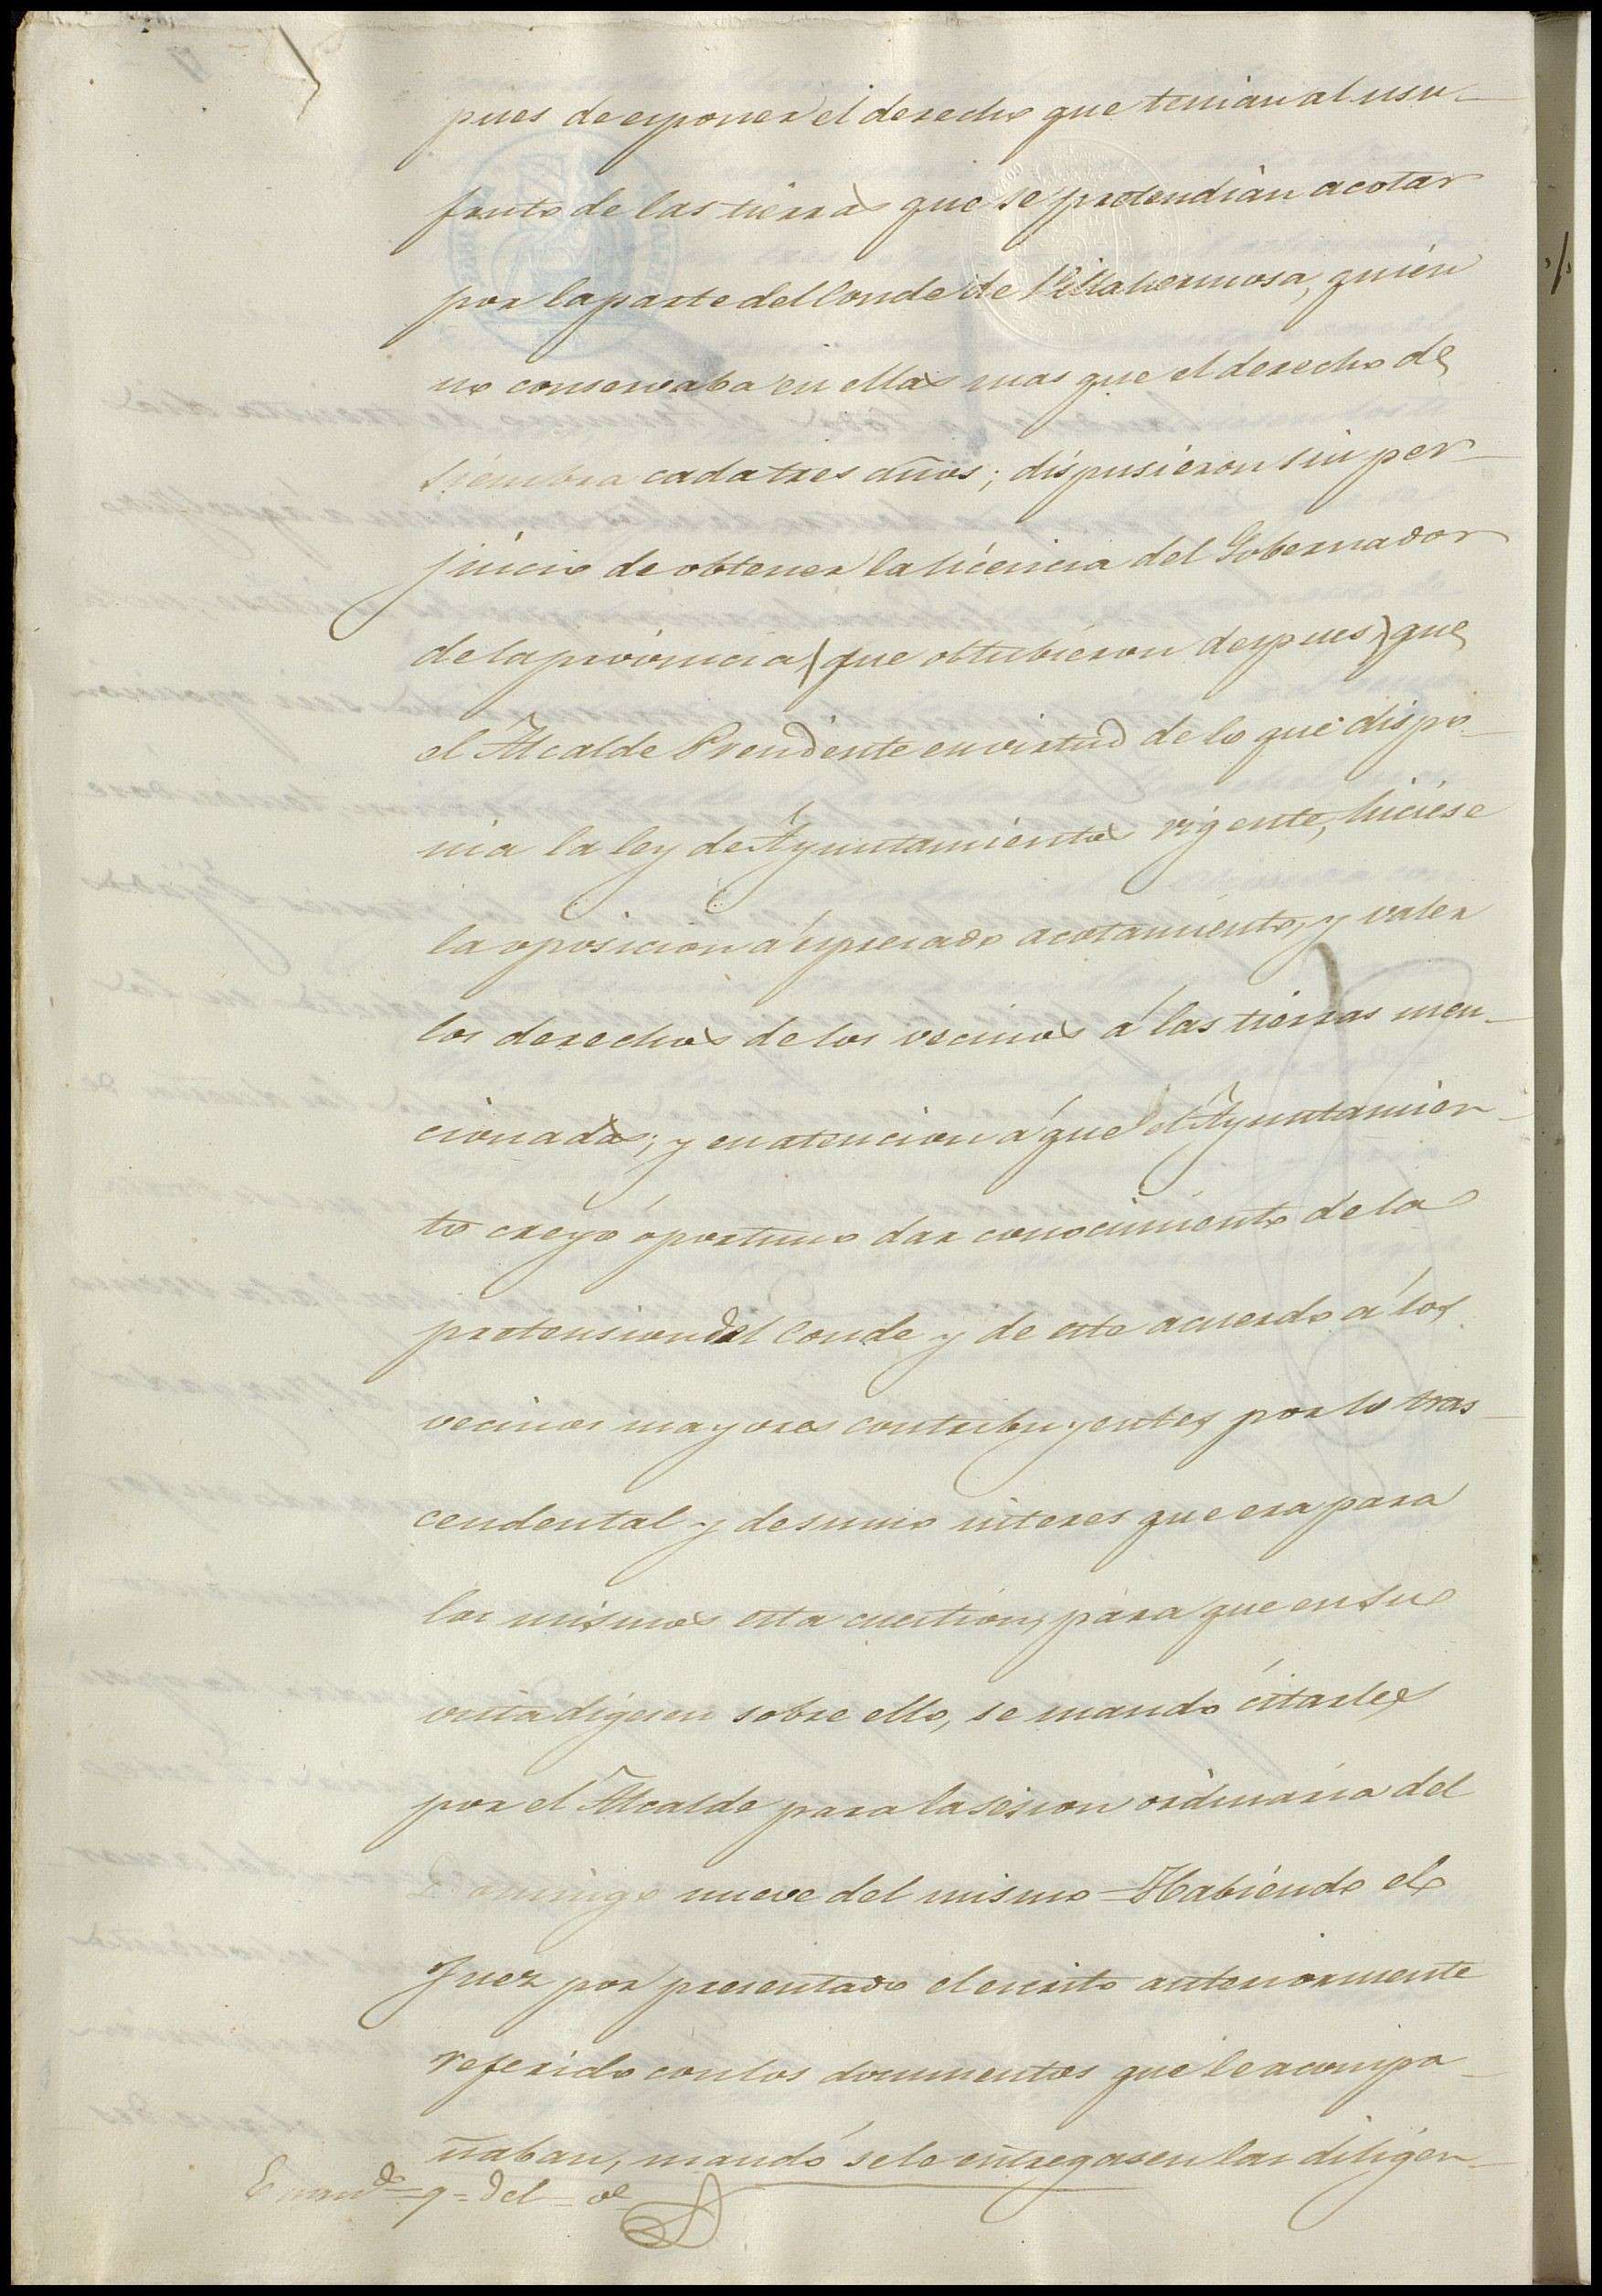 pues de esponer el derecho que tenian al usu-
fruto de las tierras que se pretendian acotar
por la parte del Conde de Villahermosa, quién
no conservaba en ellas mas que el derecho de
siembra cada tres años; dispusieron sin per-
juicio de obtener la licencia del Gobernador
de la provincia (que obtubieron despues) que
el Alcalde Presidente en virtud de lo que dispo-
nia la ley de Ayuntamientos vigente, hiciese
la oposicion á espresado acotamiento, y valer
los derechos de los vecinos á las tierras men-
cionadas; y en atencion á que el Ayuntamien-
to creyó oportuno dar conocimiento de la
pretension del Conde y de este acuerdo á los
vecinos mayores contribuyentes por lo tras-
cendental y de sumo interes que era para
los mismos esta cuestion, para que en su
vista digesen sobre ello, se mandó citarles
por el Alcalde para la sesion ordinaria del
Domingo nueve del mismo = Habiendo el
Juez por presentado el escrito anteriormente
referido con los documentos que le acompa-
ñaban, mandó se le entregasen las diligen-
Enmdo = q = del = vl